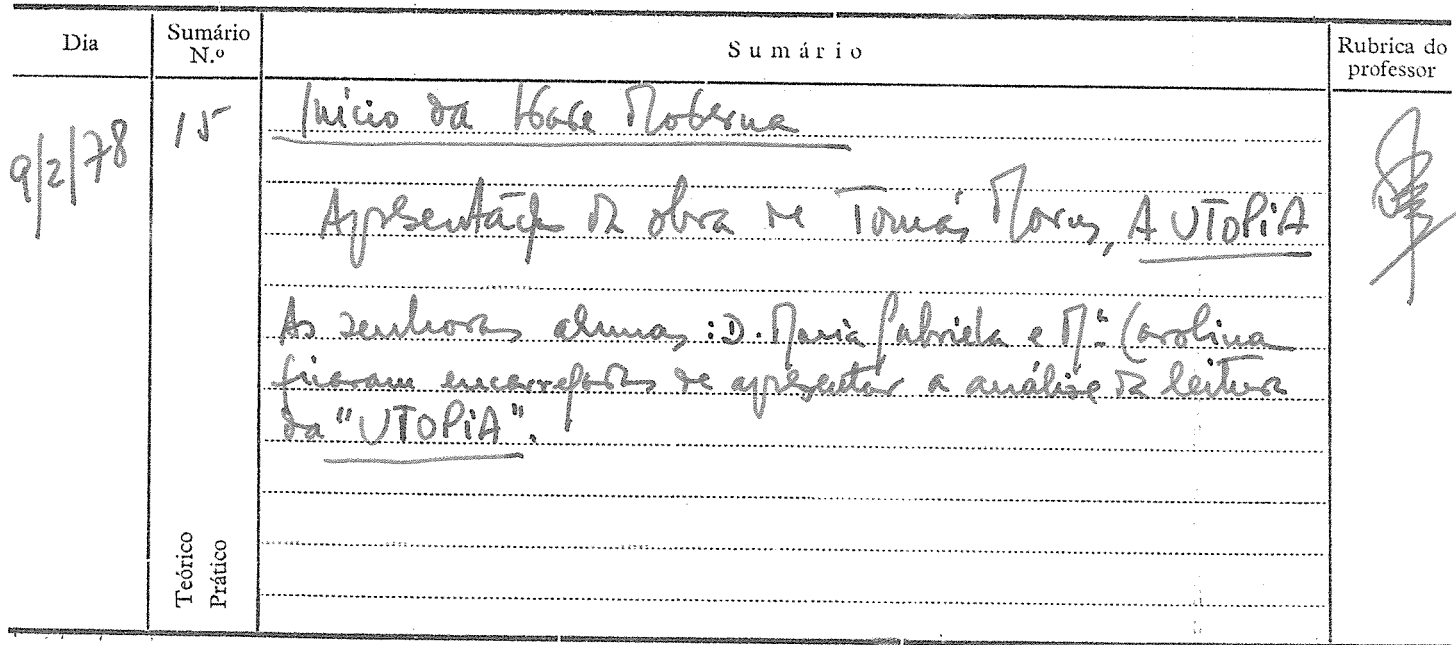 Dia
Sumário N.º
Sumário
Rubrica do professor
9/2/78
15
Início da Idade Moderna
Apresentação da obra de Tomás Morus, A UTOPIA
As senhoras alunas: D. Maria Gabriela e M.ª Carolina
ficaram encarregadas de apresentar a análise da leitura
da "UTOPIA".
Teórico
Prático